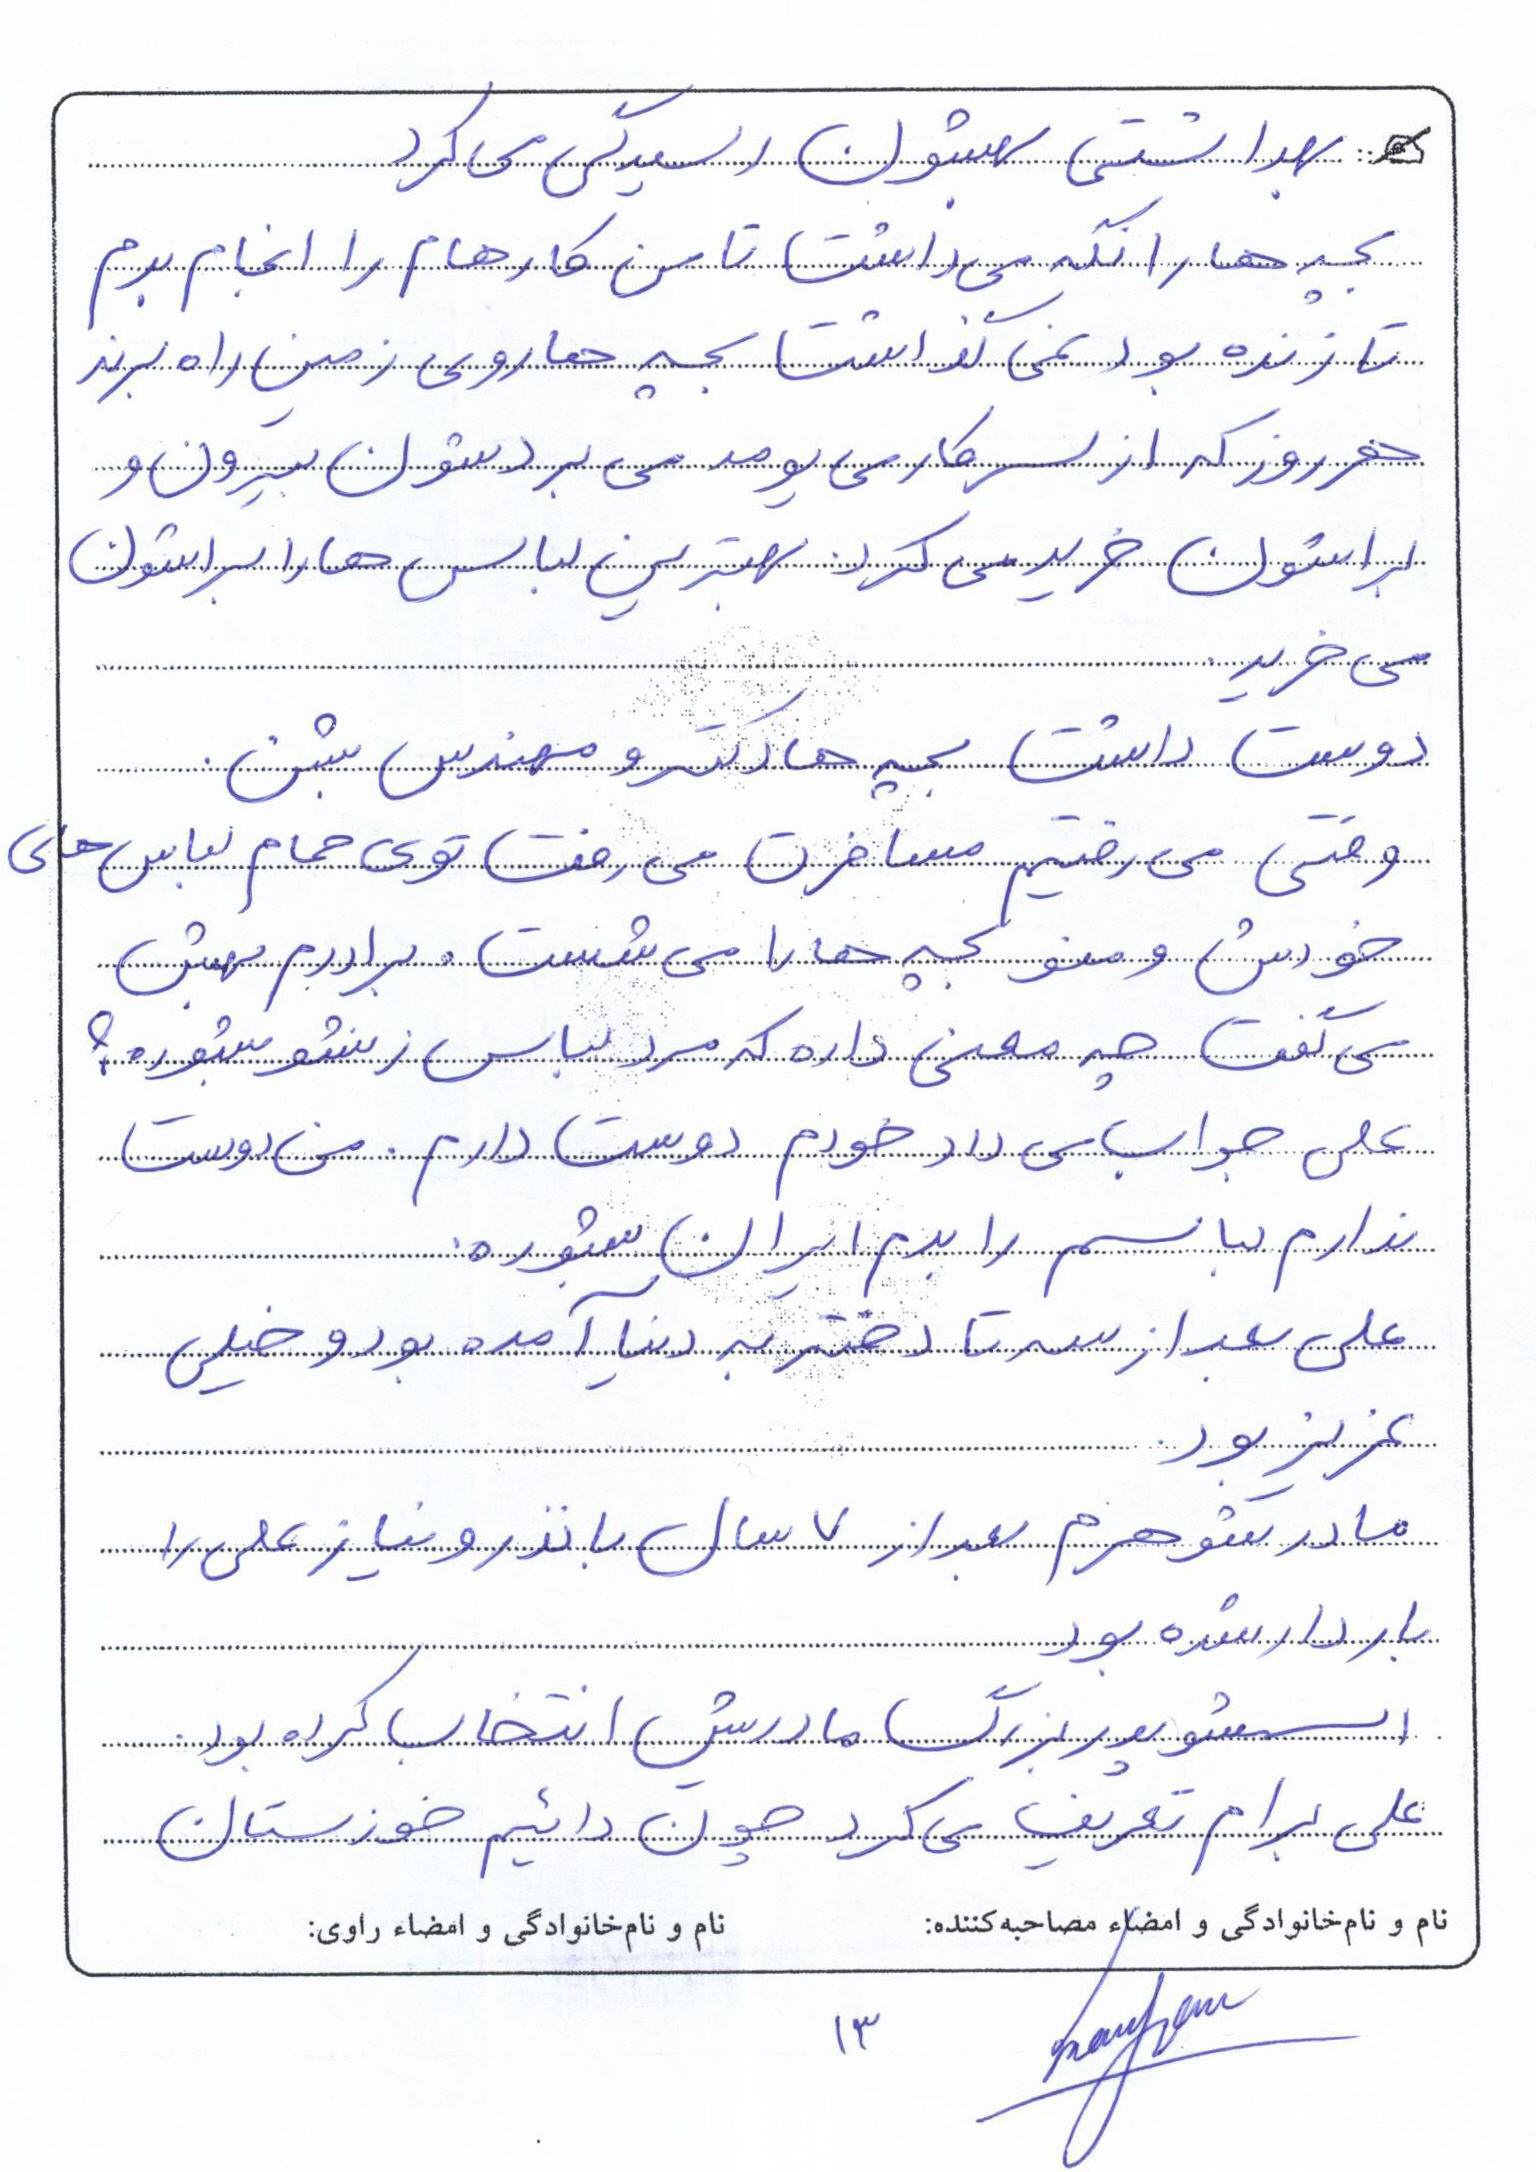 بهداشتی بهشون رسیدگی می کرد
بچه ها را نگه می داشت تا من کارهام را انجام بدم
تا زنده بود نمی گذاشت بچه ها روی زمین راه برند
هر روز که از سر کار می یومد می بردشون بیرون و
براشون خرید می کرد. بهترین لباس ها را براشون
می خرید.
دوست داشت بچه ها دکتر و مهندس بشن.
وقتی می رفتیم مسافرت می رفت توی حمام لباس های
خودش و منو بچه ها را می شست. برادرم بهش
می گفت چه معنی داره که مرد لباس زنشو بشوره؟
علی جواب می داد خودم دوست دارم. من دوست
ندارم لباسم را ببرم ایران بشوره.
علی بعد از سه تا دختر به دنیا آمده بود و خیلی
عزیز بود.
مادر شوهرم بعد از ۷ سال با نذر و نیاز علی را
باردار شده بود
اسمشو پدر بزرگ مادرش انتخاب کرده بود.
علی برام تعریف می کرد چون دائیم خوزستان
نام و نام‌خانوادگی و امضاء مصاحبه‌کننده:
نام و نام‌خانوادگی و امضاء راوی:
۱۳